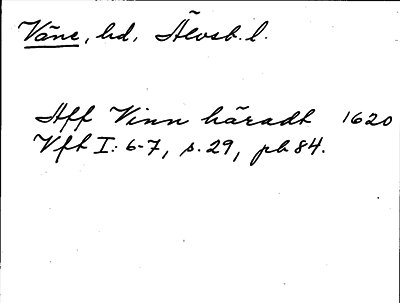 Väne, hd, Älvsb. l.
Aff Vinn häradt 1620
Vft I: 6-7, s. 29, pl. 84.